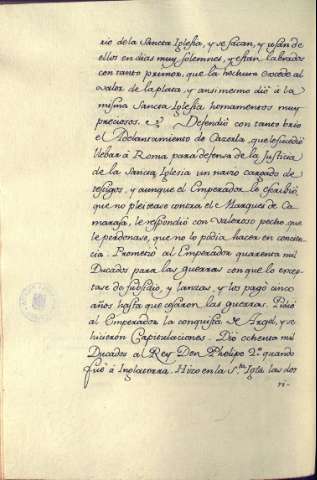 rio de la Sancta Iglesia, y se sacan, y usan de
ellos en dias muy solemnes, y estan labrados
con tanto primor, que la hechura excede al
valor de la plata, y ansimesmo dió à la
misma Sancta Iglesia hornamentos muy
preciosos. Defendió con tanto brio
el Adelantamiento de Cazorla, que le sucedió
llebar à Roma para defensa de la Justicia
de la Sancta Iglesia un navio cargado de
testigos, y aunque el Emperador le escribió
que no pleitease contra el Marques de Ca-
marasa, le respondió con valeroso pecho, que
le perdonase, que no lo podia hacer en concien-
cia. Prometió al Emperador quarenta mil
Ducados para las guerras con que lo excep-
tase de subsidio, y lanzas, y los pagó cinco
años hasta que cesaron las guerras. Pidió
al Emperador la conquista de Argel, y se
hicieron Capitulaciones. Dio ochenta mil
Ducados al Rey Don Phelipe 2º quando
fué à Inglaterra. Hizo en la S.ta Igla. las dos
ri-